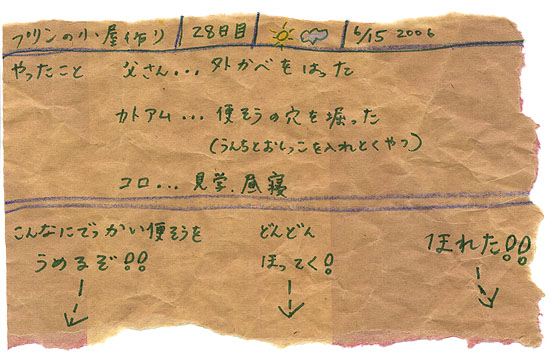 プリンの小屋作り 28日目 6/15 2006
やったこと 父さん... 外かべをはった
カトアム... 便そうの穴を掘った
(うんちとおしっこを入れとくやつ)
コロ... 見学、昼寝
こんなにでっかい便そうを
うめるぞ!!
どんどん
ほってく!
ほれた!!